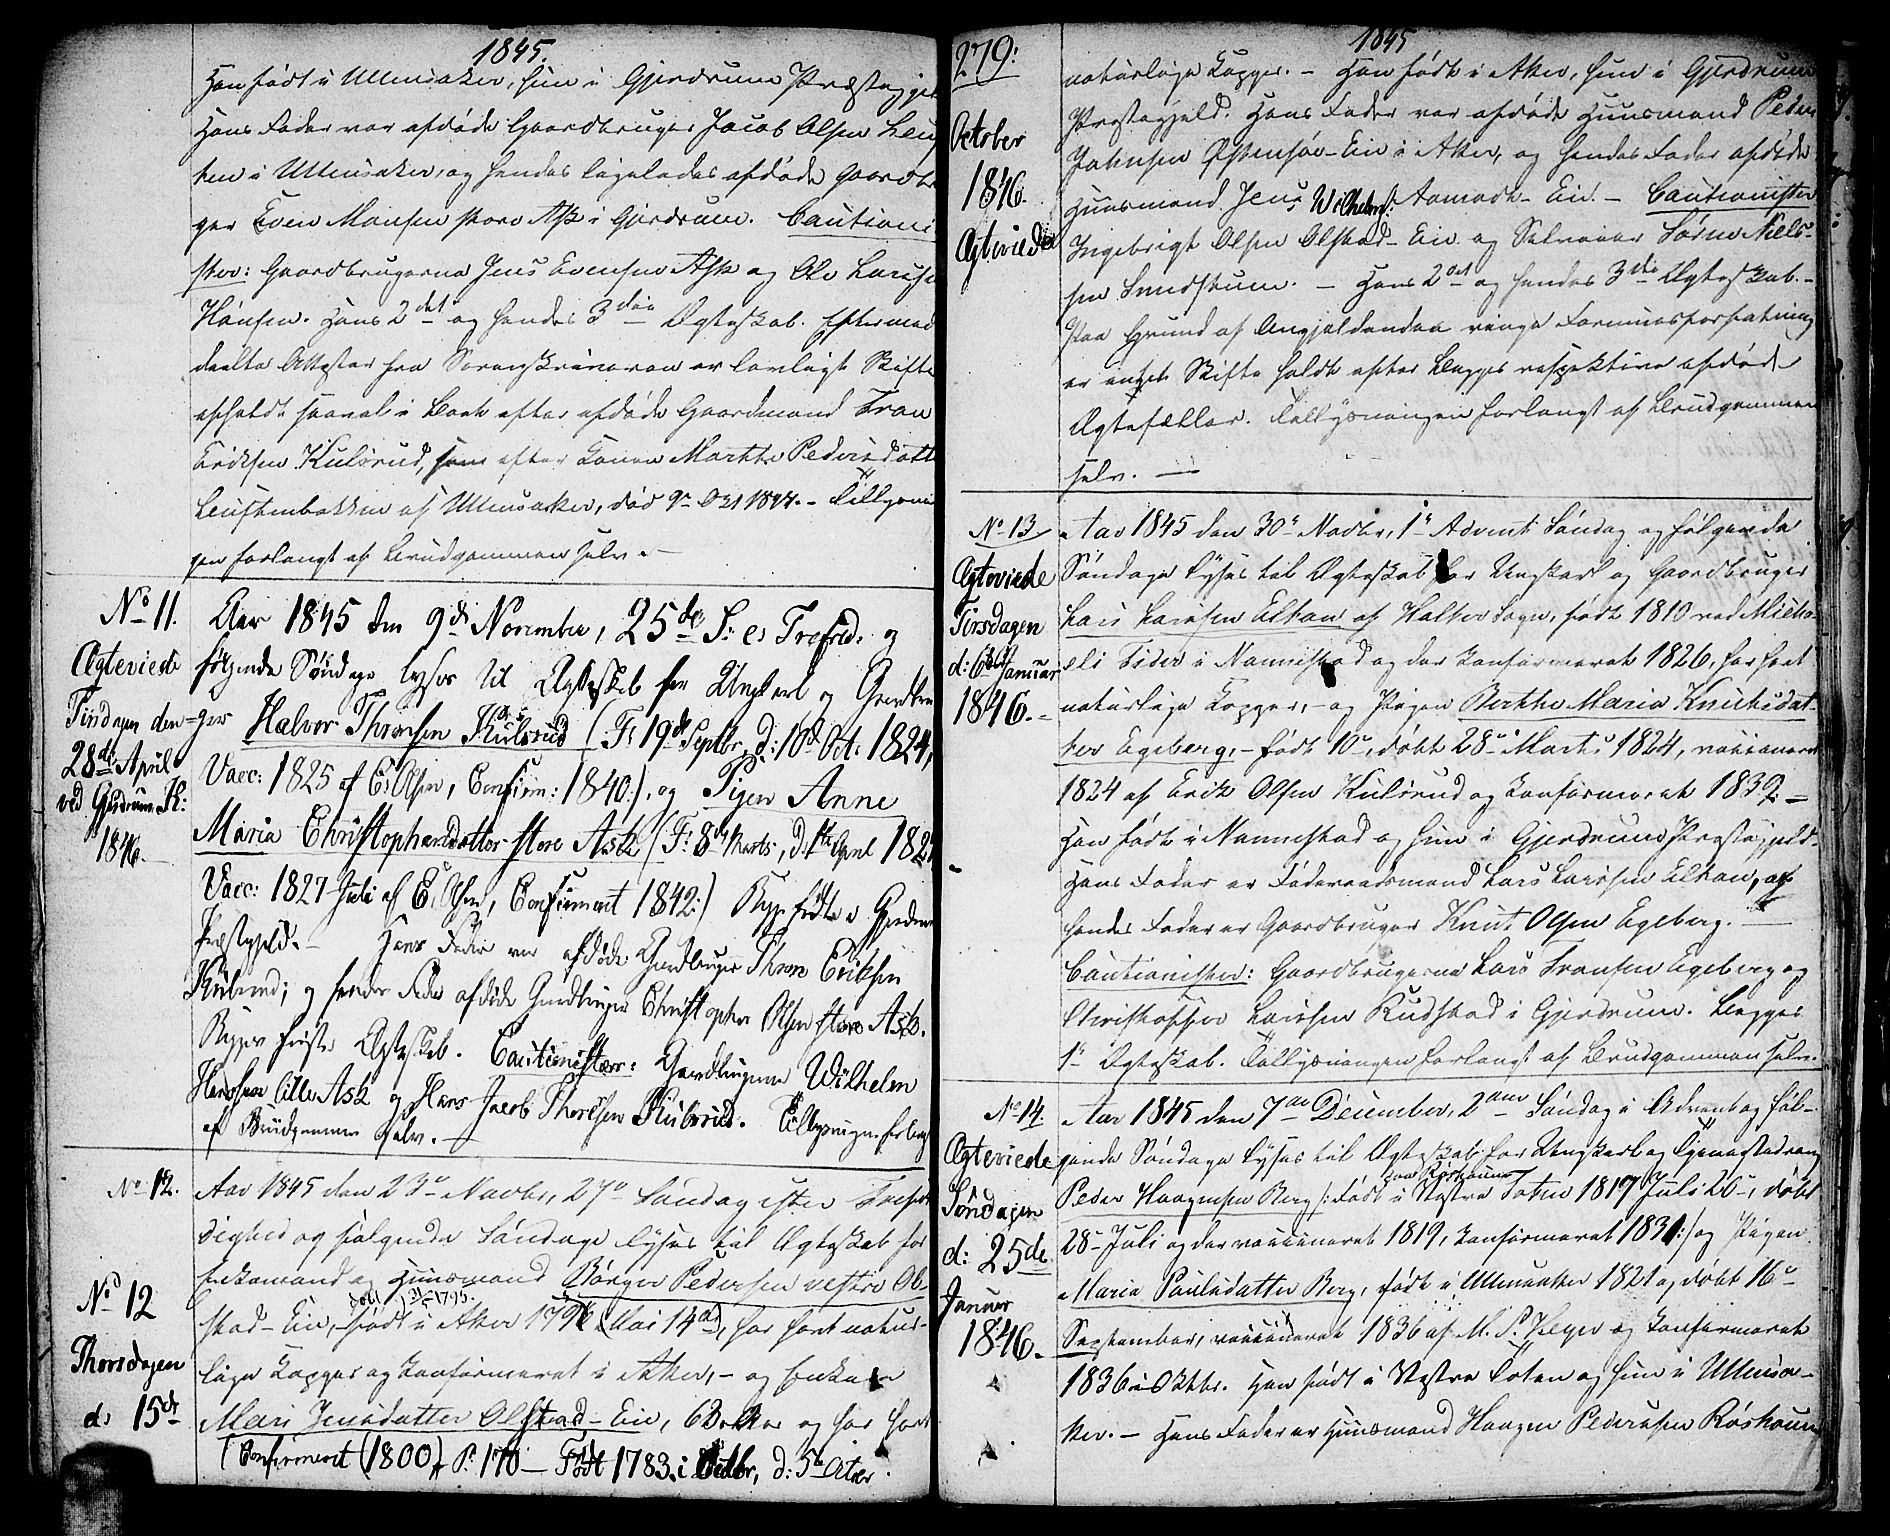 1845.
Han født i Ullensaker, hun i Gjerdrums Præstegjel
Hans Fader var afdøde Gaardbruger Jacob Olsen
i Ullensaker, og hendes ligeledes afdøde Gaardbr
ger Even Monsen store Ask i Gjerdrum. Cautioni
ster: Gaardbrugerne Jens Evensen Ask og Ole Larse
Hønsen. Hans 2det og hendes 3die Ægteskab. Efter med
deelte Attester fra Sorenskriveren er lovligt Skifte
afholdt saavel i Boet efter afdøde Gaardmand Tron
Eriksen Kulsrud, som efter Konen Marthe Pedersdatt
af Ullensaker, død 9de 1844. - Tillysnin
gen forlangt af Brudgommen selv. -
No 11.
Ægteviede
Tirsdagen den
28de April
ved Gjerdrums K:
1846.
Aar 1845 den 9de November, 25de S: e: Trefold. og
følgende Søndage lyses til Ægteskab for Ungkarl og Gaardbru
=ger Halvor Thronsen Kulsrud (F: 19de Septbr, d: 10de Oct: 1824,
Vacc: 1825 af E: Olsen, Confirm: 1840:), og Pigen Anne
Maria Christophersdatter store Ask (F: 8de Marts, d: April 182
Vacc: 1827 Juli af E. Olsen, Confirmeret 1842:) Begge fødte i Gjerdrum
Præstegjeld. - Hans Fader var afdøde Gaardbruger Thron Eriksen
Kulsrud; og hendes Fader afdøde Gaardbruger Christopher Olsen store Ask.
Begges første Ægteskab. Cautionister: Gaardbrugerne Wilhelm
Hansen lille Ask og Hans Jacob Thoresen Kulsrud. Tillysningen forlangt
af Brudgommen selv. -
No 12.
No 12
Thorsdagen
d: 15de
Aar 1845 den 23de Novbr, 27de Søndag efter Trefol
dighed og følgende Søndage lyses til Ægteskab for
Enkemand og Huusmand Børger Pedersen vestre Ol-
stad-Eie, - født i Aker 1796 (Mai 14de), har havt natur-
døbt 31/5 1795.
lige Kopper og konfirmeret i Aker, - og Enken
Mari Jensdatter Olstad-Eie, 63 Aar og har havt
(Confirmeret (1800, P. 170 - Født 1783 i Octbr, d: 5te
279:
1845
October
1846.
Ægteviede
naturlige Kopper. - Han født i Aker, hun i Gjerdrum
Præstegjeld. Hans Fader var afdøde Huusmand Peder
Johnsen Østensøe-Eie i Aker, og hendes Fader afdøde
Huusmand Jens Wilhelms: Aamodt-Eie. - Cautionister
Ingebrigt Olsen Olstad-Eie og Selveier Søren Niels-
sen Sundstuen. - Hans 2det og hendes 3die Ægteskab. -
Paa Grund af Angjeldendes ringe Formuesforfatning
er intet Skifte holdt efter Begges respektive afdøde
Ægtefæller. Tillysningen forlangt af Brudgommen
selv. -
No 13
Ægteviede
Tirsdagen
d: 6te Januar
1846. -
Aar 1845 den 30te Novbr, 1ste Advent Søndag og følgende
Søndage lyses til Ægteskab for Ungkarl og Gaardbruger
Lars Larssen Elton af Holter Sogn, født 1810 ved Micha
eli Tider i Nannestad og der konfirmeret 1826, har havt
naturlige Kopper, - og Pigen Berthe Maria Knudsdat-
ter Egeberg, - født 10de, døbt 28de Marts 1824, vaccineret
1824 af Erik Olsen Kulsrud og konfirmeret 1839 -
Han født i Nannestad og hun i Gjerdrums Præstegjeld.
Hans Fader er Føderaadsmand Lars Larssen Elton, og
hendes Fader er Gaardbruger Knut Olsen Egeberg. -
Cautionister: Gaardbrugerne Lars Tronsen Egeberg og
Christoffer Larssen Rudstad i Gjerdrum. Begges
1ste Ægteskab. Tillysningen forlangt af Brudgommen selv. -
No 14.
Ægteviede
Søndagen
d: 25de
Januar
1846. -
Aar 1845 den 7de December, 2den Søndag i Advent og føl-
gende Søndage lyses til Ægteskab for Ungkarl og Tjenestedreng
Peder Haagensen Berg /: født i Vestre Toten 1819 Juli 20de, døbt
paa Røshoug
28de Juli og der vaccineret 1819, konfirmeret 1831:/ og Pigen
Maria Paulsdatter Berg, født i Ullensaker 1821 og døbt 16de
September, vaccineret 1836 af M. P. Beyer og konfirmeret
1836 i Oktbr. Han født i Vestre Toten og hun i Ullensa-
ker. - Hans Fader er Huusmand Haagen Pedersen Røshoug